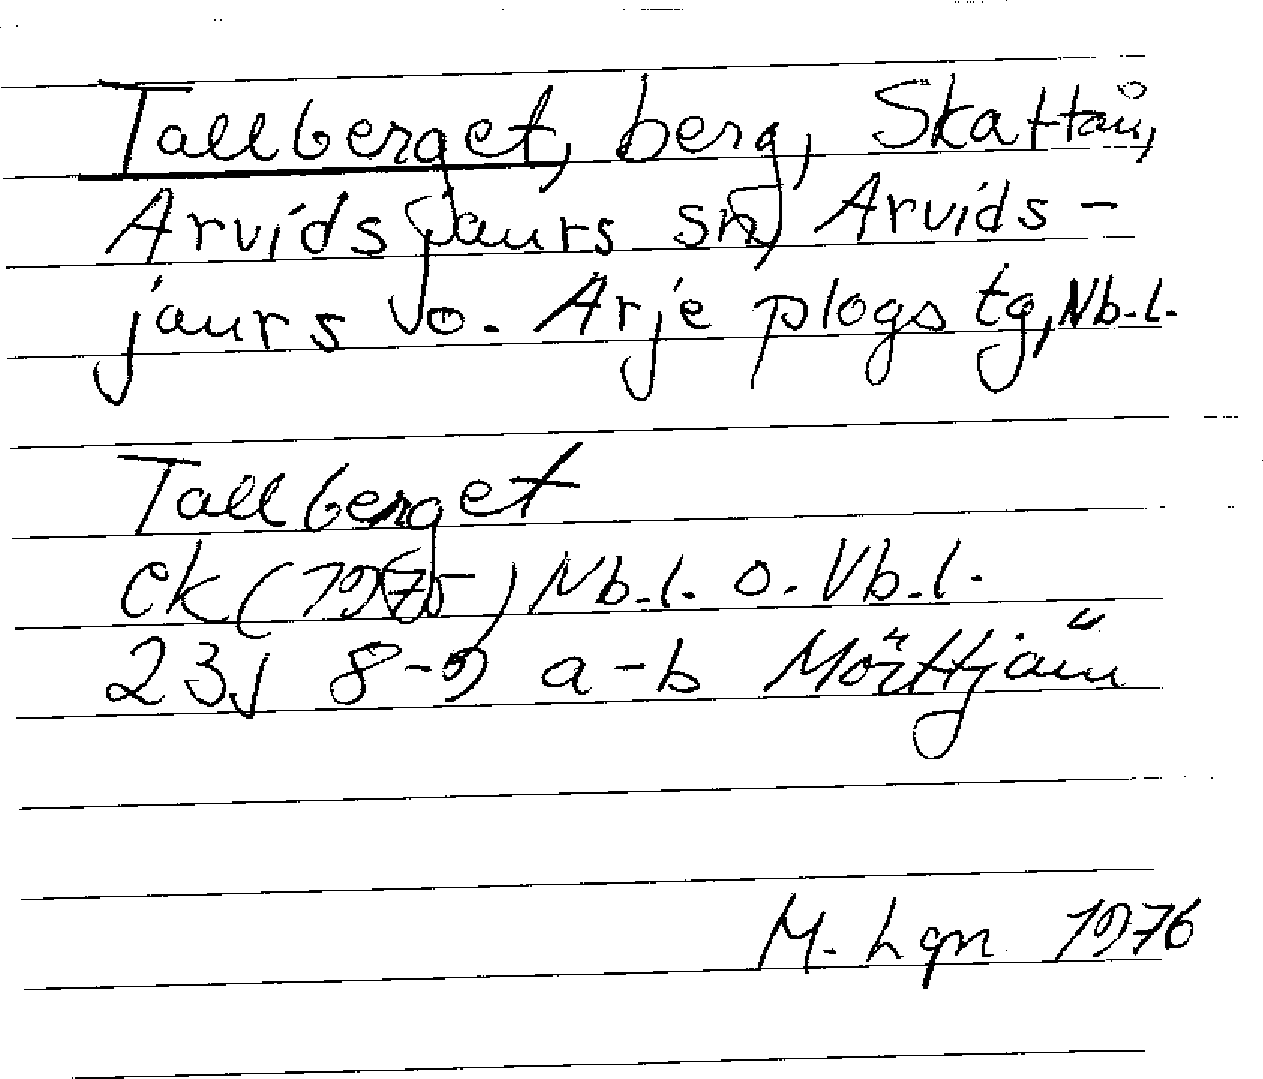 Tallberget, berg, Skattån,
Arvidsjaurs sn, Arvids-
jaurs o. Arjeplogs tg, Nb.l.
Tallberget
ek (1975) Nb.l. o. Vb.l.
23J 8-9 a-b Mörttjärn
M. Lgn 1976